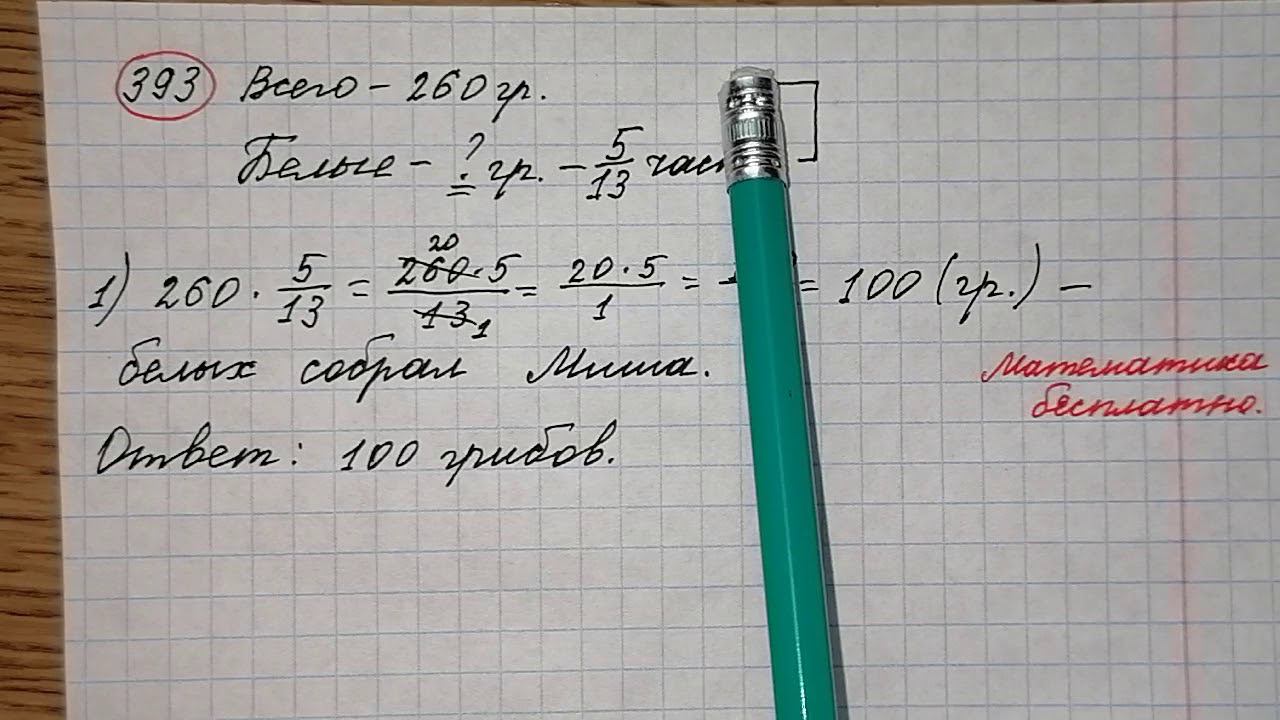 393 Всего – 260 гр.
Белые – ? гр. – 5/13
1) 260 · 5/13 = 260 · 5/13 = 20 · 5/1 = = 100 (гр.) –
20
1
белых собрал Миша.
Ответ: 100 грибов.
Математика
бесплатно.